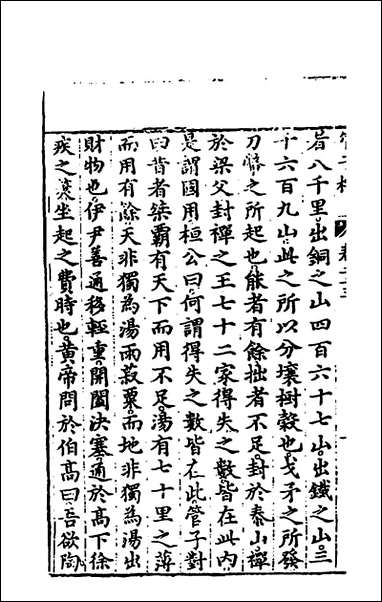 者八千里出銅之山四百六十七山出鐵之山三
十六百九山此之所以分壤樹穀也戈矛之所發
刀幣之所起也能者有餘拙者不足封於泰山禪
於梁父封禪之王七十二家得失之數皆在此內
是謂國用桓公曰何謂得失之數皆在此管子對
曰昔者桀霸有天下而用不足湯有七十里之薄
而用有餘天非獨為湯雨菽粟而地非獨為湯出
財物也伊尹善通移輕重開闔決塞通於高下徐
疾之筴坐起之費時也黃帝問於伯高曰吾欲陶